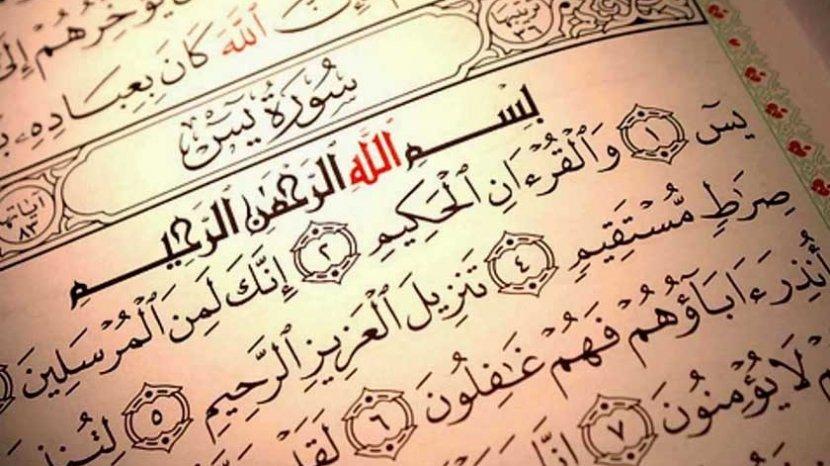 يُؤَخِّرُهُمْ إِلَى
إِنَّ ٱللَّهَ كَانَ بِعِبَادِهِۦ
تَرتيبُهَا ٣٦
سُورَةُ يسٓ
آياتها ٨٣
بِسْمِ ٱللَّهِ ٱلرَّحْمَٰنِ ٱلرَّحِيمِ
يسٓ ١ وَٱلْقُرْءَانِ ٱلْحَكِيمِ ٢ إِنَّكَ لَمِنَ ٱلْمُرْسَلِينَ
صِرَٰطٍ مُّسْتَقِيمٍ ٤ تَنزِيلَ ٱلْعَزِيزِ ٱلرَّحِيمِ ٥
أُنذِرَ ءَابَآؤُهُمْ فَهُمْ غَٰفِلُونَ ٦ لَقَدْ
لَا يُؤْمِنُونَ ٧ إِنَّا